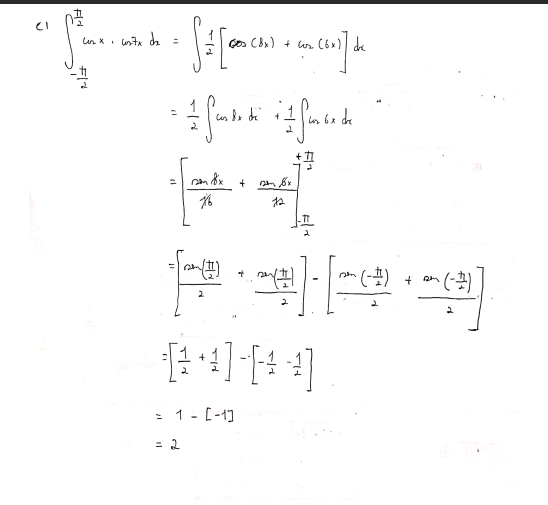 c) ∫_{-π/2}^{π/2} cos x . cos7x dx = ∫ 1/2 [cos (8x) + cos (6x)] dx
= 1/2 ∫cos 8x dx + 1/2 ∫cos 6x dx
= [sen 8x/16 + sen 6x/12]_{-π/2}^{+π/2}
= [sen(π/2)/2 + sen(π/2)/2] - [sen (-π/2)/2 + sen (-π/2)/2]
= [1/2 + 1/2] - [-1/2 - 1/2]
= 1 - [-1]
= 2